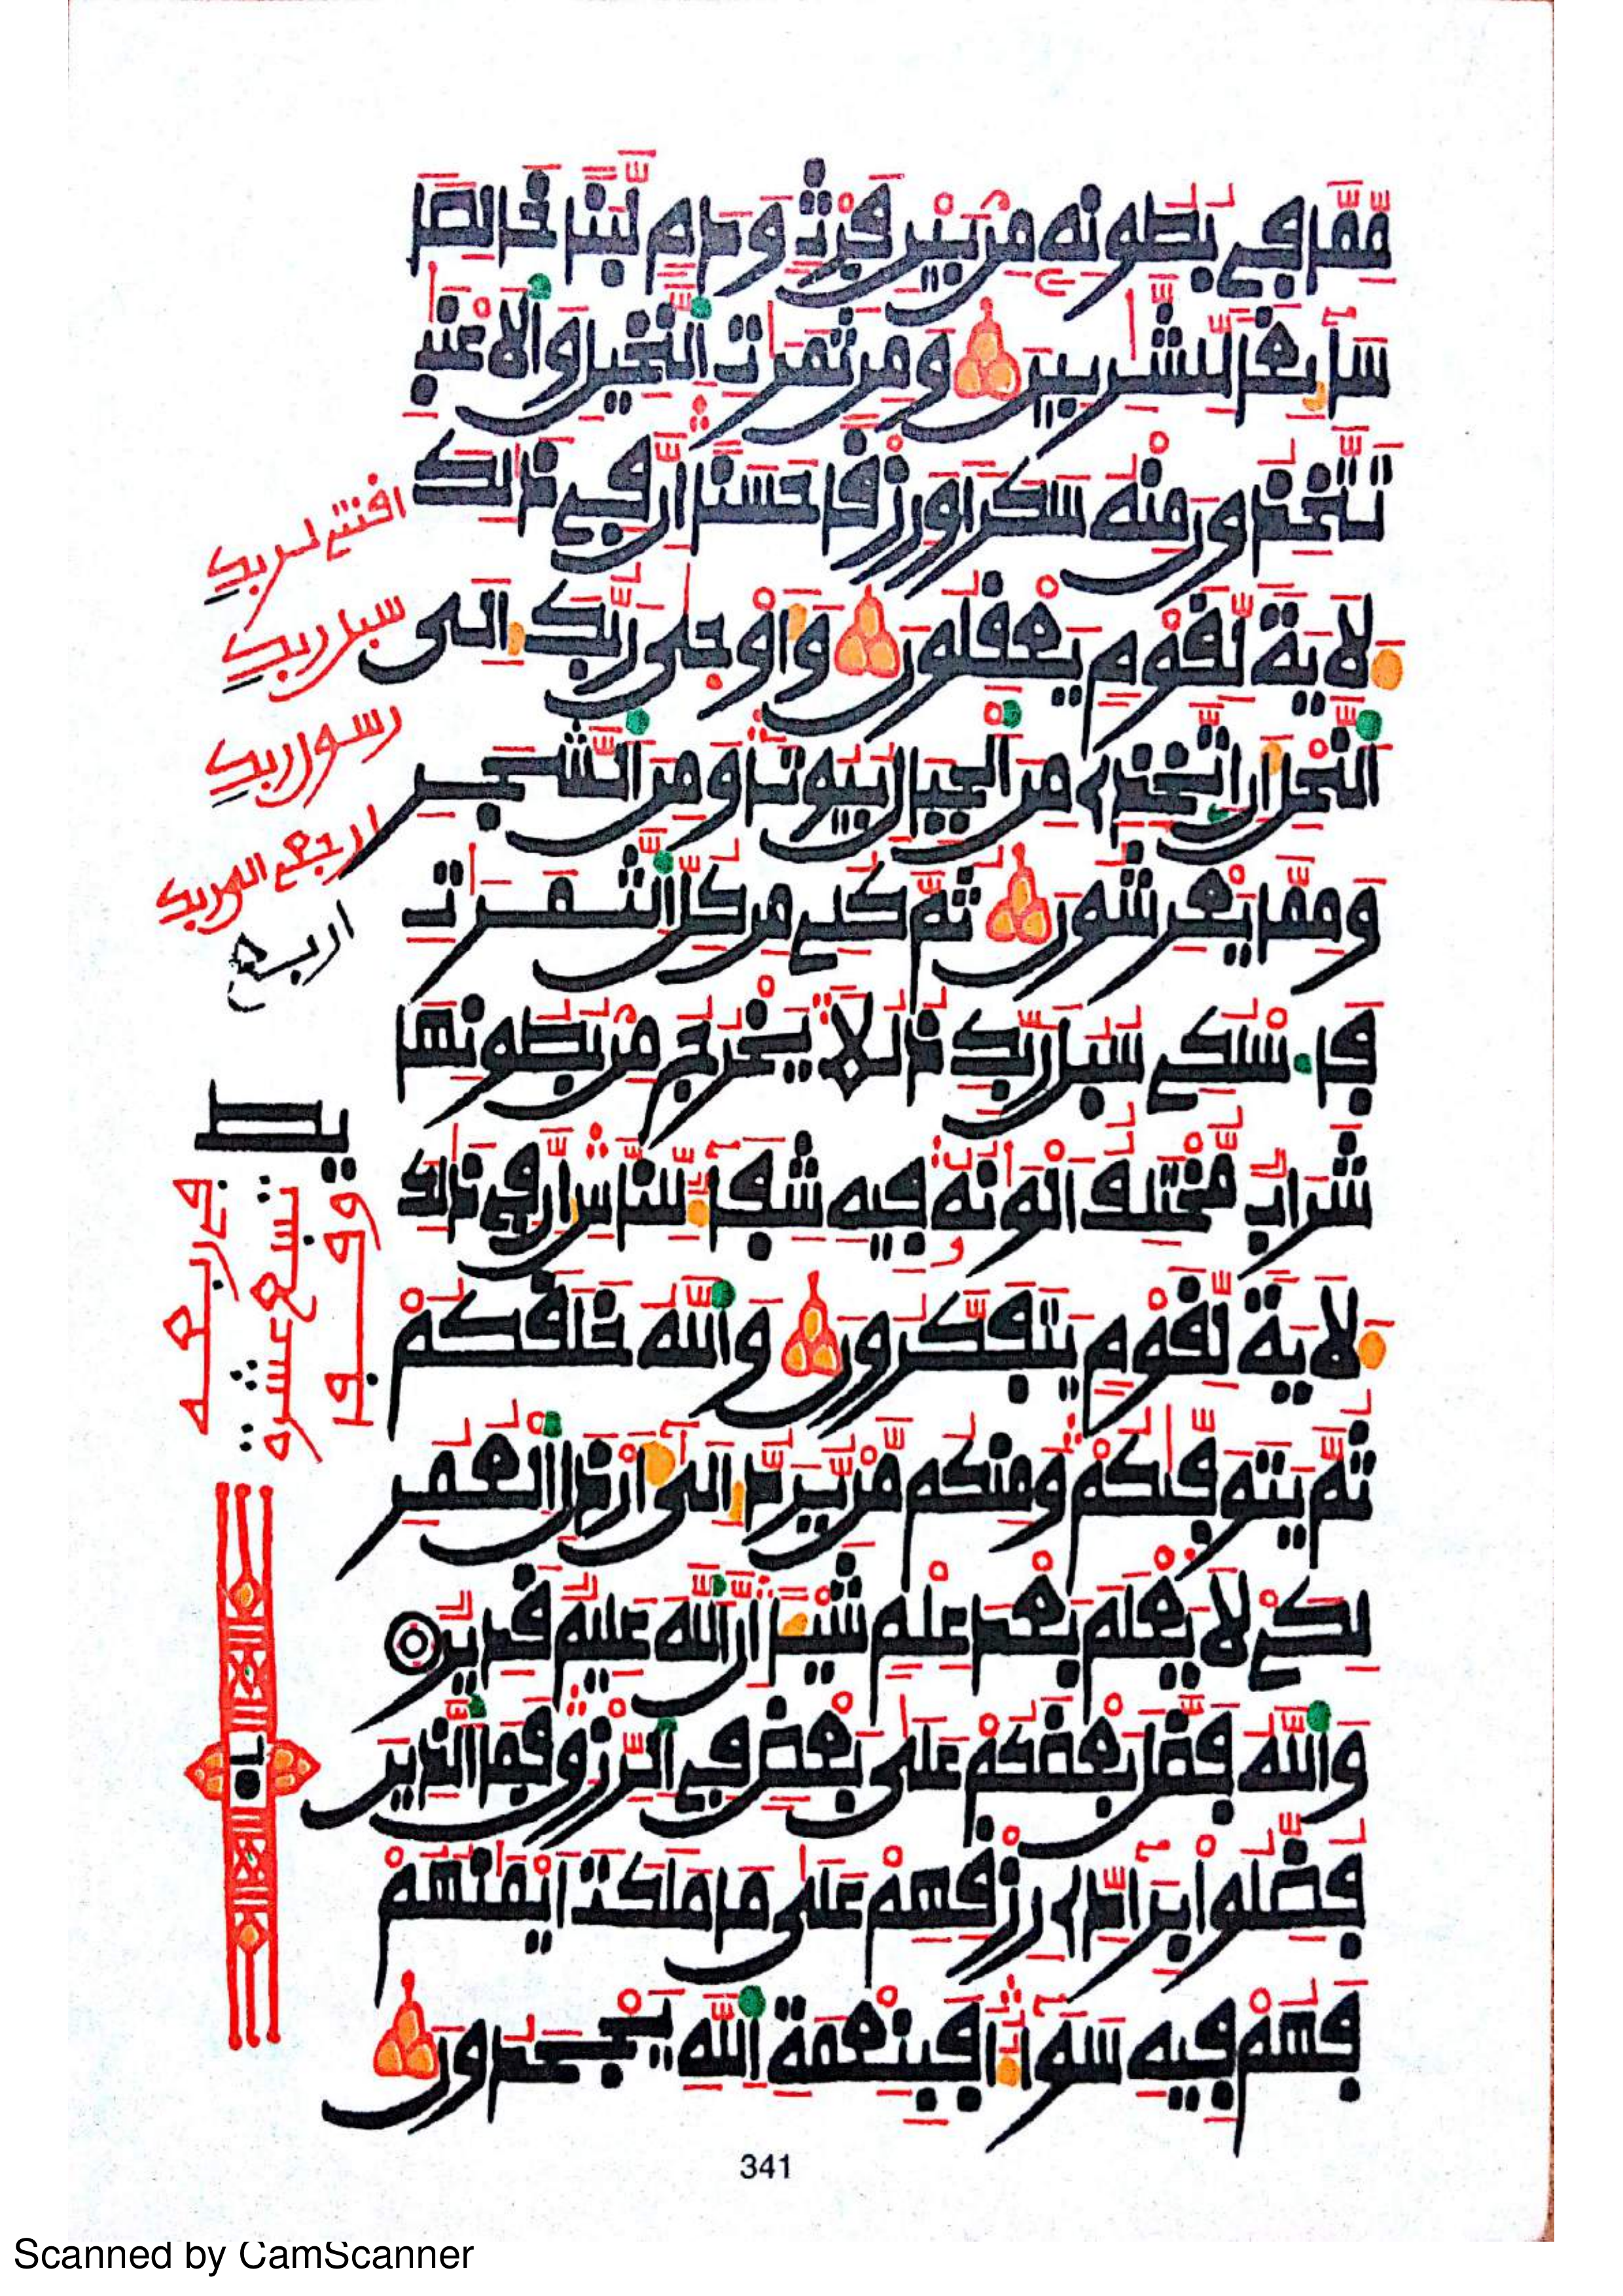 مِّمَّا فِى بُطُونِهِ مِنۢ بَيْنِ فَرْثٍ وَدَمٍ لَّبَنًا خَالِصًا
سَآئِغًا لِّلشَّٰرِبِينَ وَمِن ثَمَرَٰتِ ٱلنَّخِيلِ وَٱلَاعْنَٰبِ
تَتَّخِذُونَ مِنْهُ سَكَرًا وَرِزْقًا حَسَنًا اِنَّ فِى ذَٰلِكَ
لَأٓيَةً لِّقَوْمٍ يَعْقِلُونَ وَأَوْحَىٰ رَبُّكَ إِلَى
ٱلنَّحْلِ أَنِ ٱتَّخِذِے مِنَ ٱلْجِبَالِ بُيُوتًا وَمِنَ ٱلشَّجَرِ
وَمِمَّا يَعْرِشُونَ ثُمَّ كُلِے مِن كُلِّ ٱلثَّمَرَٰتِ
فَاسْلُكِے سُبُلَ رَبِّكِ ذُلُلًا يَخْرُجُ مِنۢ بُطُونِهَا
شَرَابٌ مُّخْتَلِفٌ اَلْوَٰنُهُ فِيهِ شِفَآءٌ لِّلنَّاسِ إِنَّ فِى ذَٰلِكَ
لَأٓيَةً لِّقَوْمٍ يَتَفَكَّرُونَ وَٱللَّهُ خَلَقَكُمْ
ثُمَّ يَتَوَفَّىٰكُمْ وَمِنكُم مَّنْ يُّرَدُّ إِلَىٰٓ أَرْذَلِ ٱلْعُمُرِ
لِكَےْ لَا يَعْلَمَ بَعْدَ عِلْمٍ شَيْـًٔا اِنَّ ٱللَّهَ عَلِيمٌ قَدِيرٌ
وَٱللَّهُ فَضَّلَ بَعْضَكُمْ عَلَىٰ بَعْضٍ فِى ٱلرِّزْقِ فَمَا ٱلَّذِينَ
فُضِّلُوا۟ بِرَآدِّے رِزْقِهِمْ عَلَىٰ مَا مَلَكَتَ اَيْمَٰنُهُمْ
فَهُمْ فِيهِ سَوَآءٌ اَفَبِنِعْمَةِ ٱللَّهِ يَجْحَدُونَ
سبل ربك
رسول ربك
ارجع الى ربك
اربع
341
Scanned by CamScanner